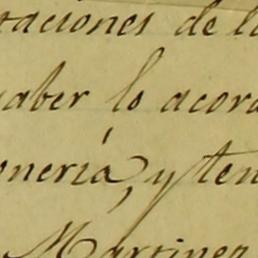 taciones de l
saber lo acord
onería, y ten
Martinez